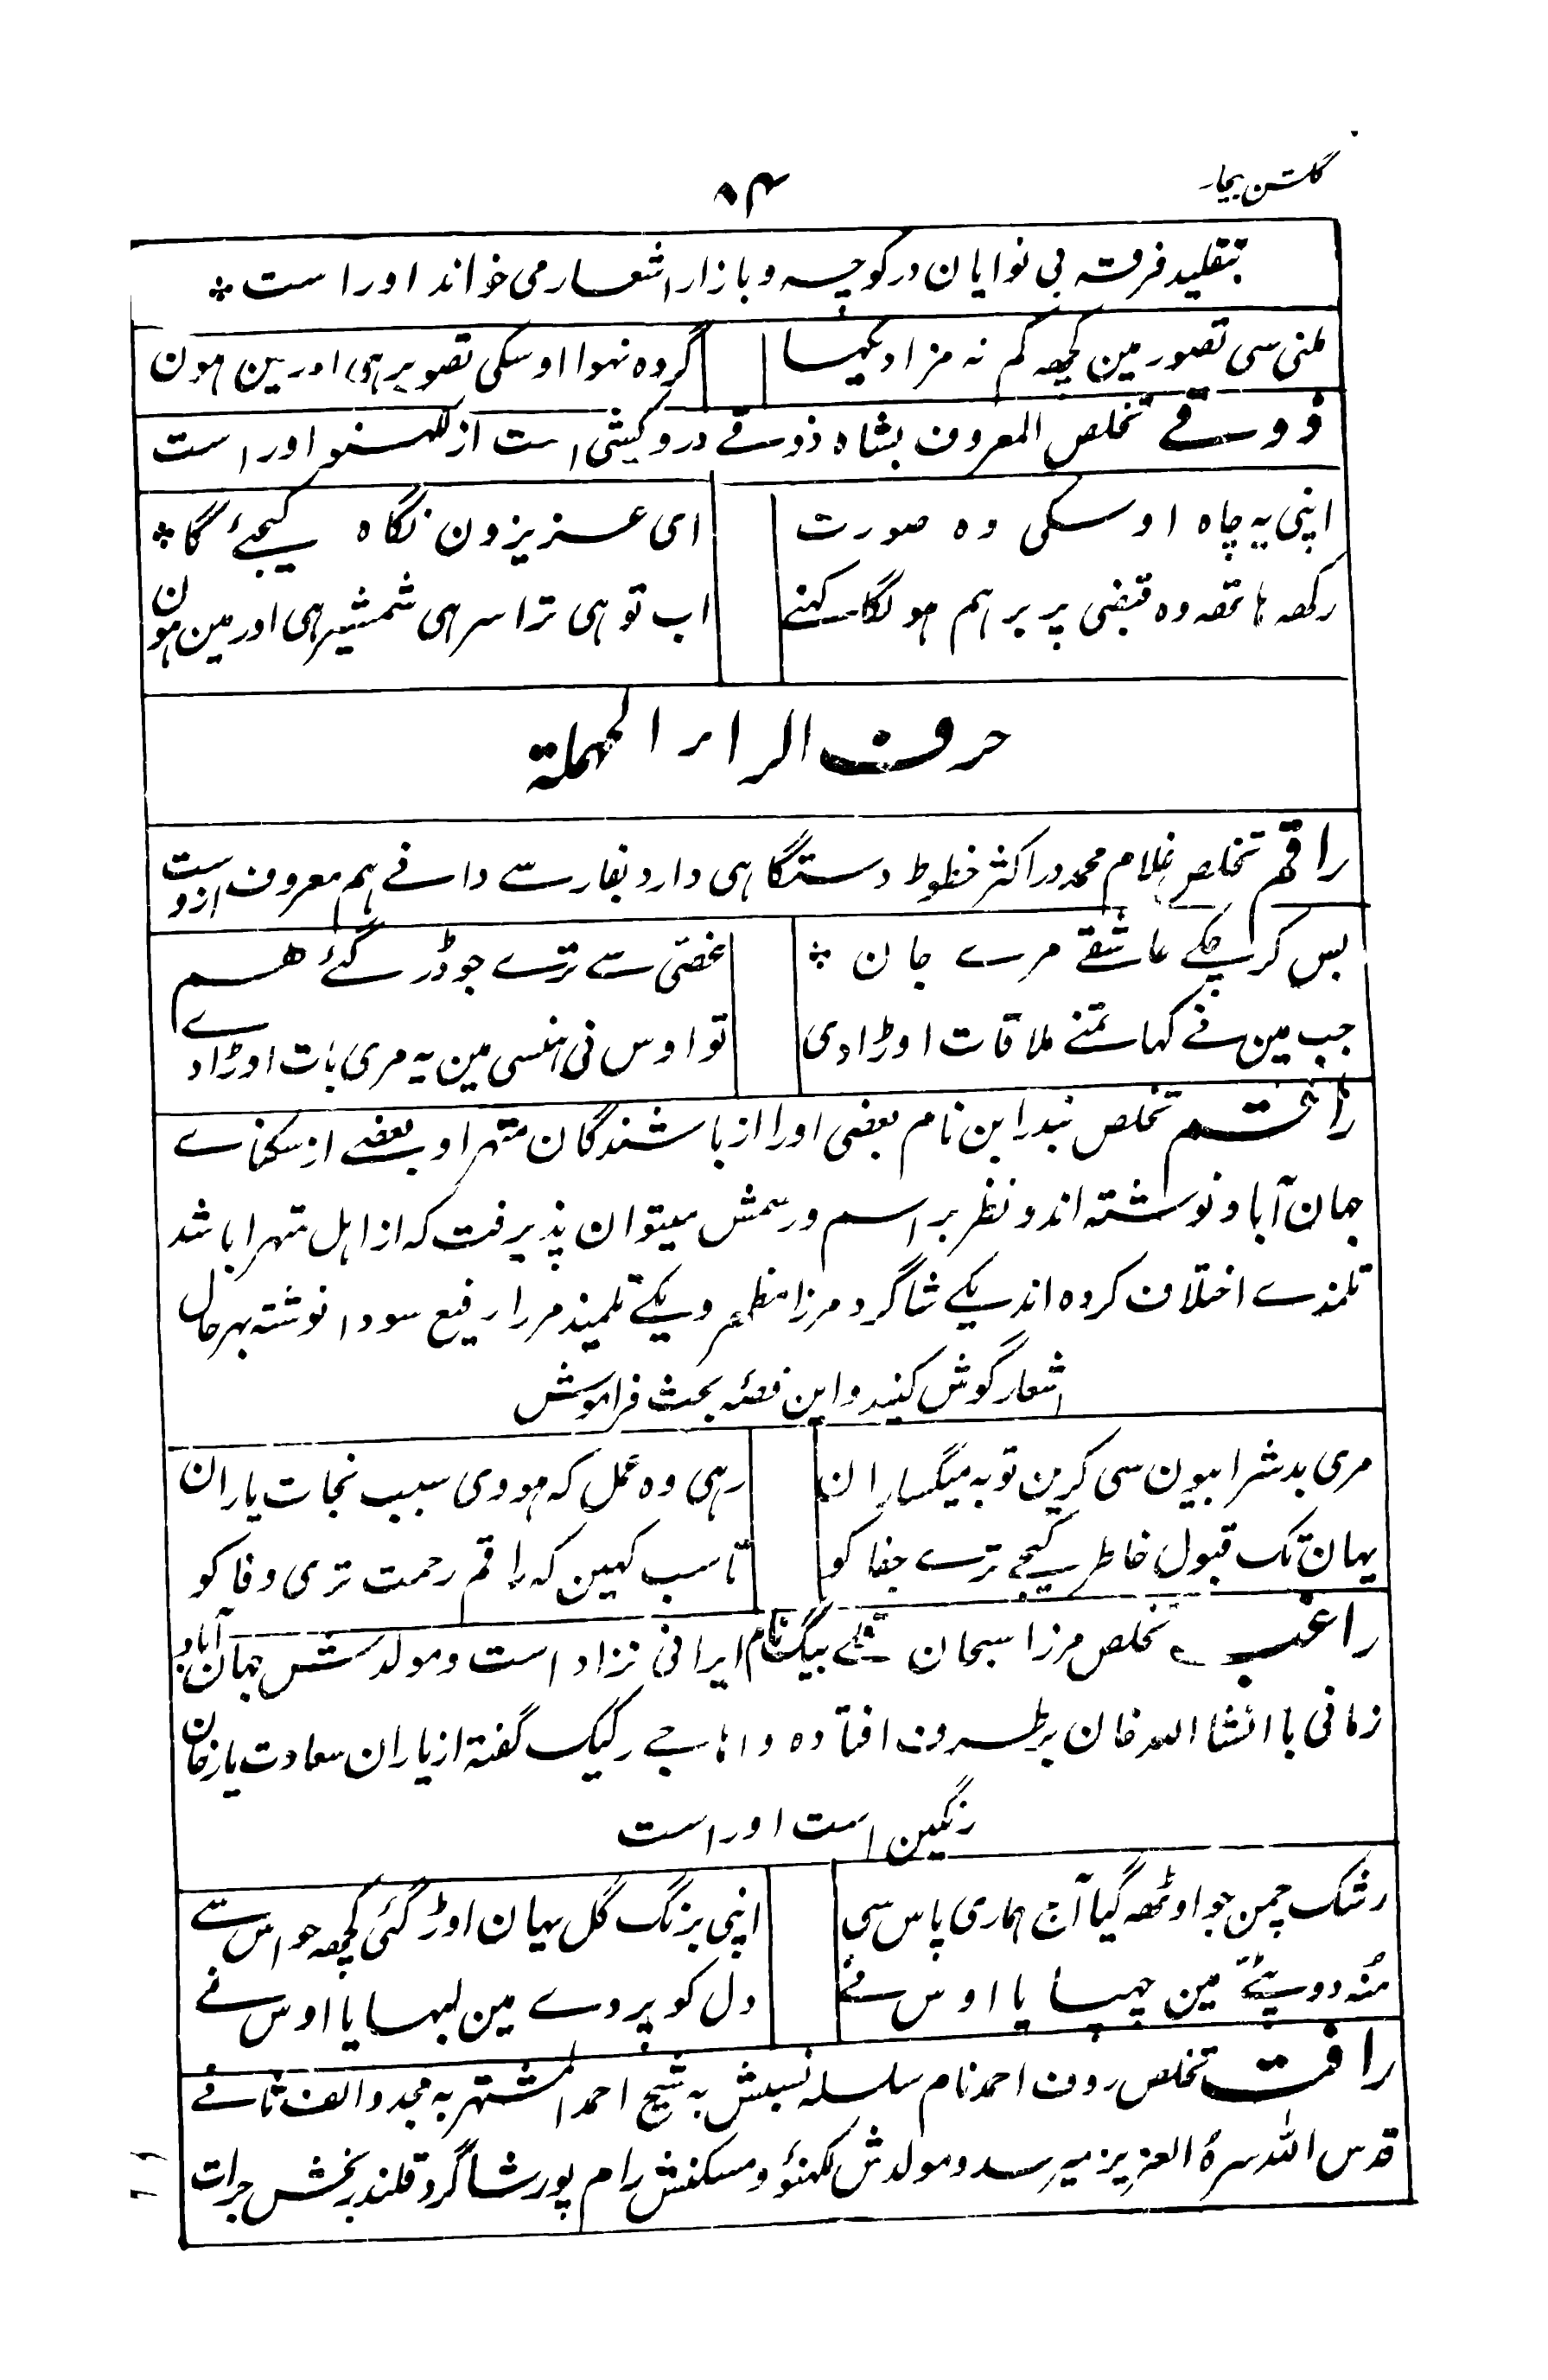 گلشن بیخار
۸۴
بتقلید فرقہ بی نوایان در کوچہ و بازار اشعار می خواند اوراست *
ملنی سی تصور مین کچھہ کم نہ مزا دیکھا گروہ نہوا اوسکی تصویر ہی اور مین ہون
ذوقے تخلص المعروف بشاہ ذوقے درویشی است از لکہنو اوراست
اپنی یہ چاہ اوسکی وہ صورت ای عزیزون نگاہ کیجئے گا *
رکھہ ہاتھہ وہ قبضی پر برہم ہو لگا کہنے اب تو ہی ترا سر ہی شمشیر ہی اور مین ہون
حرف الراء المہملة
راقم تخلص غلام محمد در اکثر خطوط دستگاہی دارد بفارسے دانے ہم معروف ست ازو
بس کر چکے عاشقے مرے جان * غصّی سے ترے جو ڈر گئے هم
جب مین نے کہا تمنے ملاقات اوڑا دی تو اوس نی ہنسی مین یہ مری بات اوڑا دے
راقم تخلص بندرابن نام بعضی اورا از باشندگان متہرا و بعضے از سکناے
جہان آباد نوشتہ اند و نظر بر اسم و رسمش میتوان پذیرفت کہ از اہل متہرا باشد
تلمذے اختلاف کردہ اند یکے شاگرد مرزا مظہر و یکے تلمیذ مرزا رفیع سودا نوشتہ بہرحال
اشعار گوش کنید و این قصّہ بحث فراموش
مری بد شرابیون سی کرین توبہ میگساران رہی وہ عمل کہ ہووی سبب نجات یاران
یہان تک قبول خاطر کیجے ترے جفا کو تا سب کہین کہ راقم رحمت تری وفا کو
راغب تخلص مرزا سبحان قلے بیگ نام ایرانی نژاد است و مولدش جہان آباد
زمانی با انشا اللہ خان برطرف افتادہ و اہاجے رکیک گفتہ از یاران سعادت یارخان
رنگین است اوراست
رشک چمن جو اوٹھہ گیا آج ہماری پاس سی اپنی برنگ گل یہان اوڑ گئی کچھہ حواس سے
مُنہ دوپٹّے مین چہپایا اوس نے دل کو پردے مین لبہایا اوس نے
رافت تخلص روف احمد نام سلسلہ نسبش بہ شیخ احمد المشتہر بہ مجدد الف ثانے
قدس اللہ سرہُ العزیز میرسد و مولدش لکہنؤ و مسکنش رام پور شاگرد قلندر بخش جرات